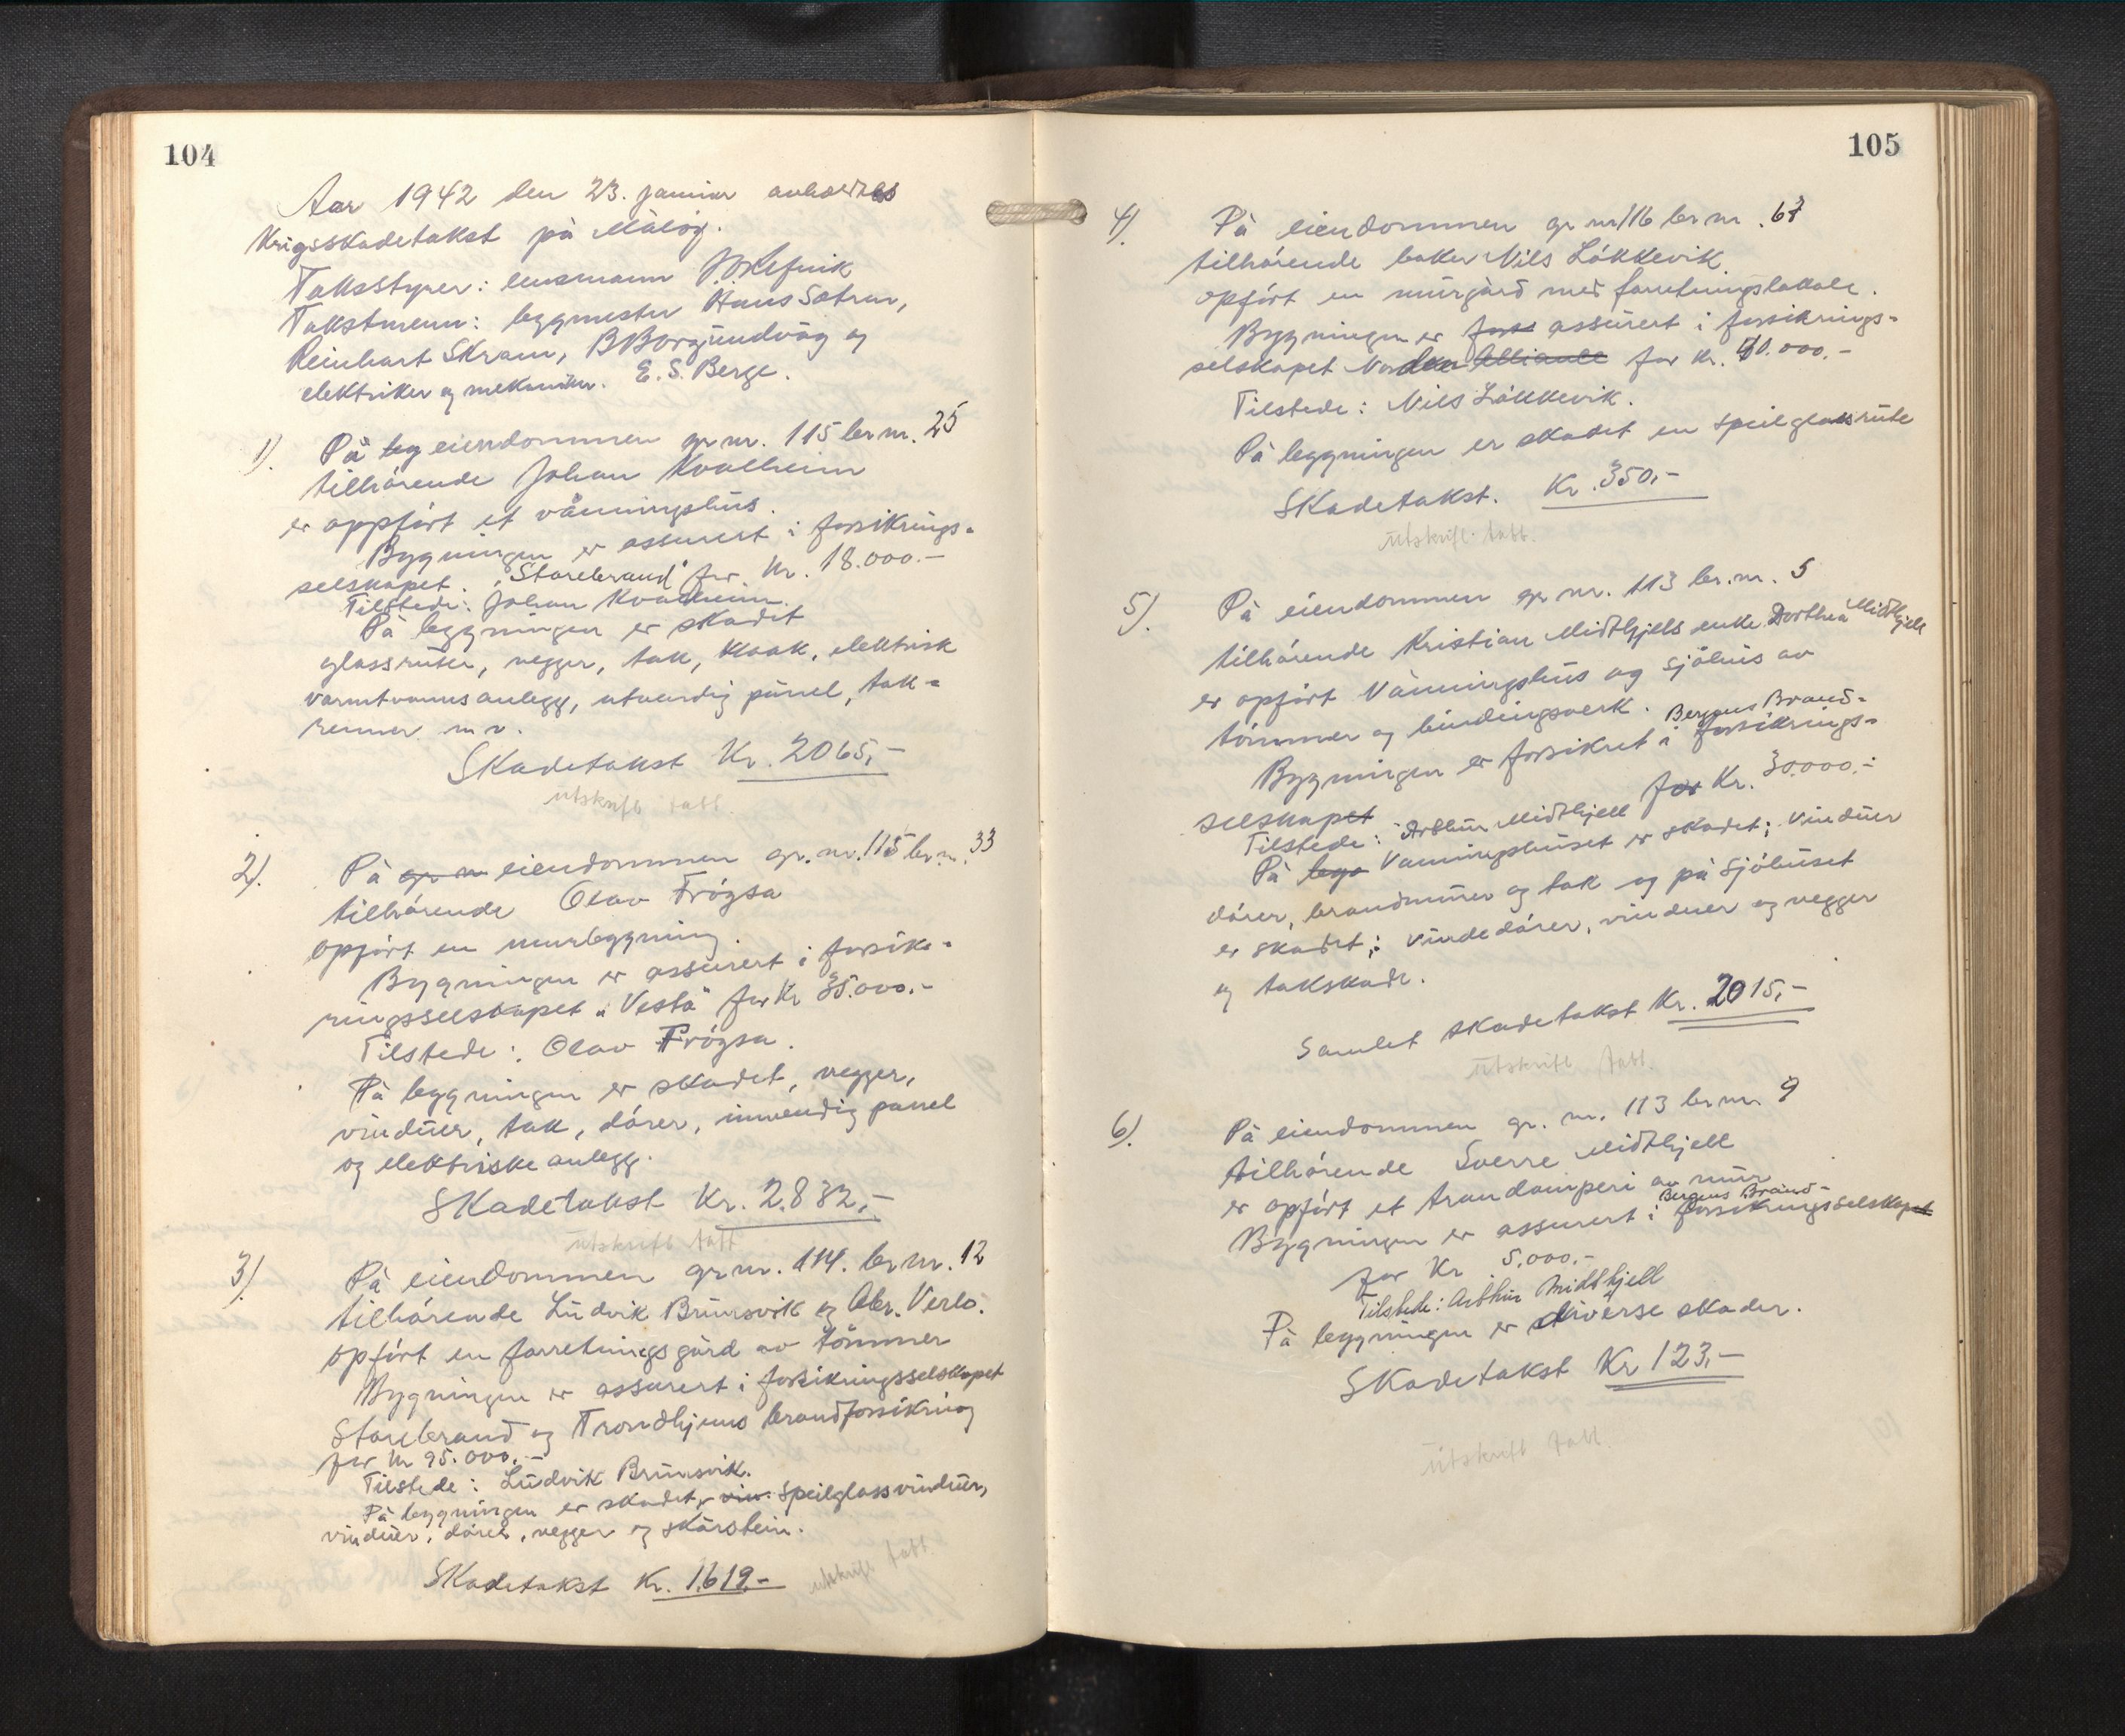 104
Aar 1942 den 23. januar avholdtes
Krigsskadetakst på Måløy.
Takstyrer: lensmann
Takstmenn: byggmester Hans Sætren,
Reinhart Skram, B Borgundvåg og
elektriker og mekaniker. E. S. Berge.
1). På byg eiendommen gr nr. 115 br nr. 25
tilhörende Johan Kvalheim
er oppfört et våningshus.
Bygningen er assurert i forsikrings-
selskapet "Storebrand" for kr. 18.000.-
Tilstede: Johan Kvalheim.
På bygningen er skadet
glassruter, vegger, tak, kloak, elektrisk
varmtvannsanlegg, utvendig panel, tak-
renner m.v.
Skadetakst Kr. 2065,-
utskrift tatt.
2). På gr nr eiendommen gr. nr. 115 br. nr. 33
tilhörende Olav Fröysa
opfört en murbygning.
Bygningen er assurert i forsik-
ringsselskapet "Vesta" for Kr 35.000.-
Tilstede: Olav Fröysa.
På bygningen er skadet, vegger,
vinduer, tak, dörer, innvendig panel
og elektriske anlegg.
Skadetakst Kr. 2.832,-
utskrift tatt
3). På eiendommen gr nr. 114. br nr. 12
tilhörende Ludvik Brunsvik og Abr. Verlo.
opfört en forretningsgård av tömmer
Bygningen er assurert i forsikringsselskapet
Storebrand og Trondhjems brandforsikring
for kr 95.000.-
Tilstede: Ludvik Brunsvik.
På bygningen er skadet, vin speilglassvinduer,
vinduer, dörer, vegger og skorstein.
Skadetakst Kr. 1.619.-
utskrift tatt.
105
4). På eiendommen gr nr 116 br nr. 63
tilhörende baker Nils Lökkevik
opfört en murgård med forretningslokale.
Bygningen er fors assurert i forsikrings-
selskapet Norden Alliance for kr. 40.000.-
Tilstede: Nils Lökkevik.
På bygningen er skadet en speilglassrute
Skadetakst. Kr. 350,-
utskrift tatt.
5). På eiendommen gr nr. 113 br. nr. 5
tilhörende Kristian Midthjells enke Dorthea Midthjell
er opfört Våningshus og Sjöhus av
tömmer og bindingsverk. Bergens Brand-
Bygningen er forsikret i forsikrings-
selskapet for Kr. 30.000.-
Tilstede: Arthur Midthjell
På bygn Vaningshuset er skadet; vinduer
dörer, brandmurer og tak og på Sjöhuset
er skadet; vindedörer, vinduer og vegger
og takskade.
Samlet skadetakst Kr. 2015,-
utskrift tatt.
6). På eiendommen gr. nr. 113 br nr. 9
tilhörende Sverre Midthjell
er opfört et trandamperi av mur
Bergens Brand-
Bygningen er assurert i forsikringsselskapet
for Kr 5.000.-
Tilstede: Arthur Midthjell
På bygningen er diverse skader.
Skadetakst Kr 123,-
utskrift tatt.